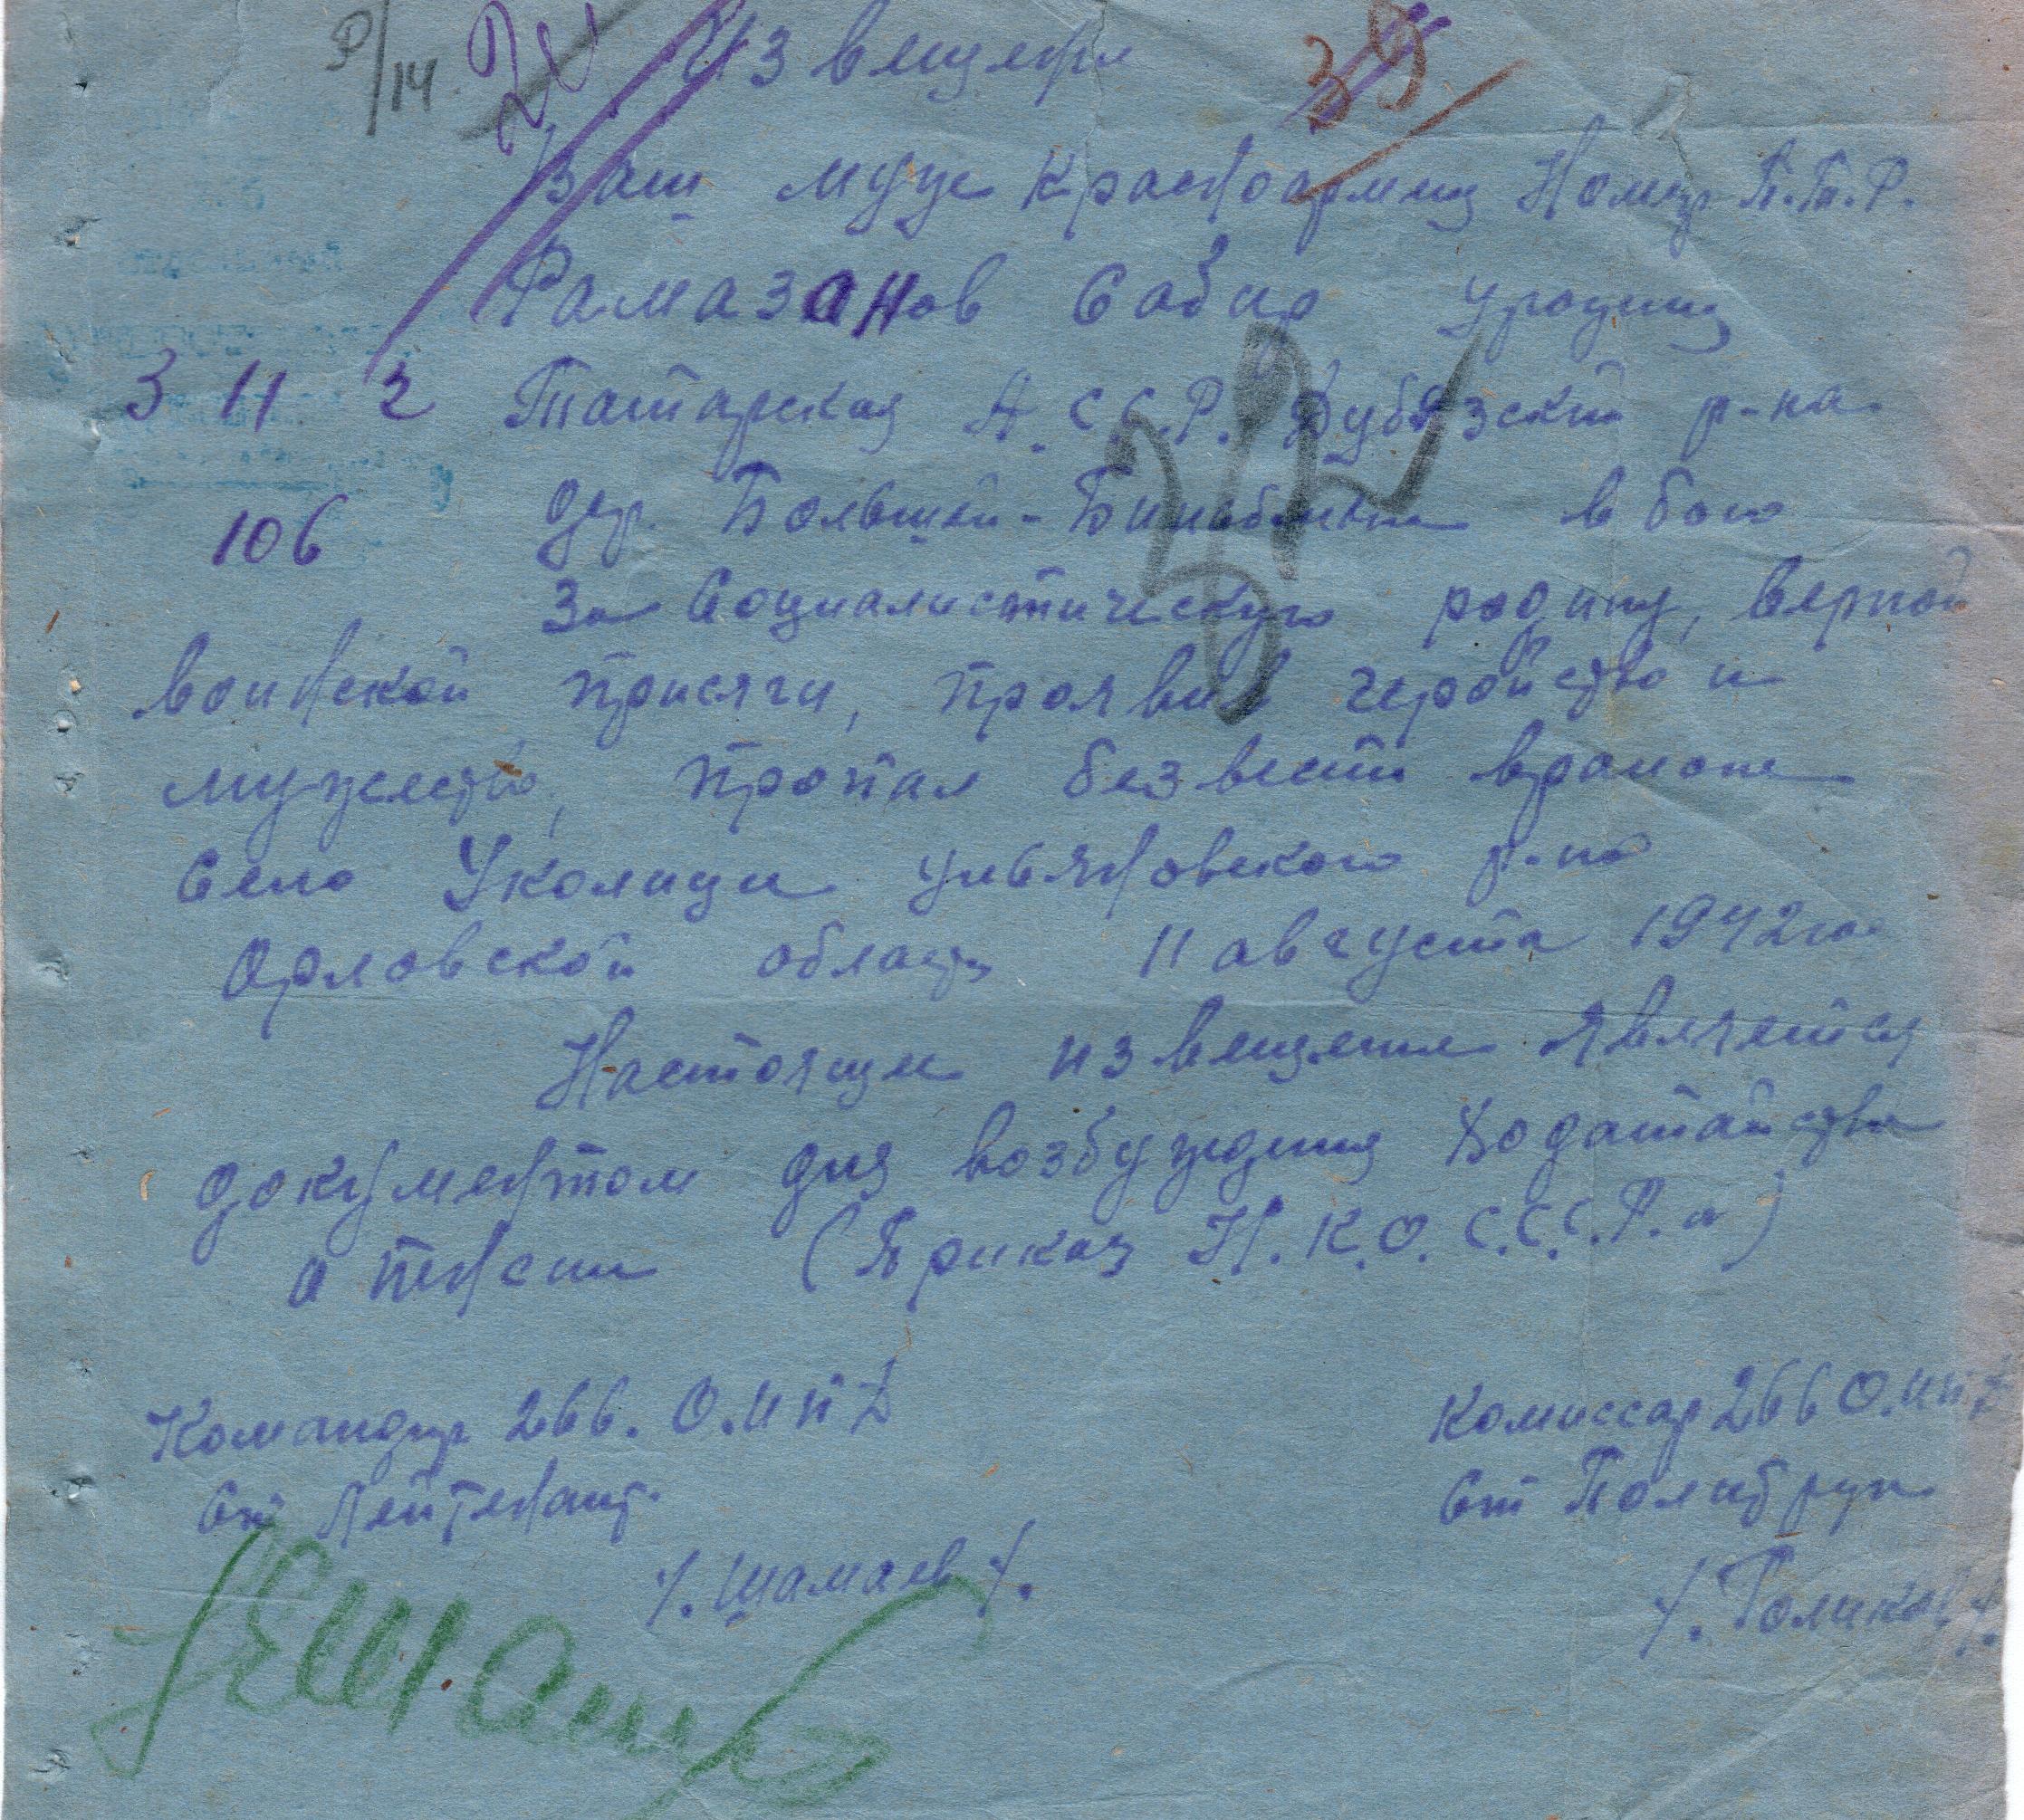 Р/14 20 Извещение 39
Ваш муж красноармеец Номер П.Т.Р.
Рамазанов Сабир урожениц
3 11 2 Татарская А.С.С.Р. Дубязский р-на
дер. Большей- в бою
106
За Социалистическую родину, верной
воинской присяги, проявив геройство и
мужество, пропал безвести в районе
Село Уколицы Ульяновского р-на
Орловской области 11 августа 1942 го
Настоящие извещение является
документом для возбуждения ходатайства
о пенсии (Приказ Н.К.О. С.С.С.Р. №)
Командир 266. О.М.П.Б Комиссар 266 О.М.П.Б
Ст Лейтенант. Ст Политрук
/. Шамаев /. /. Голиков /.